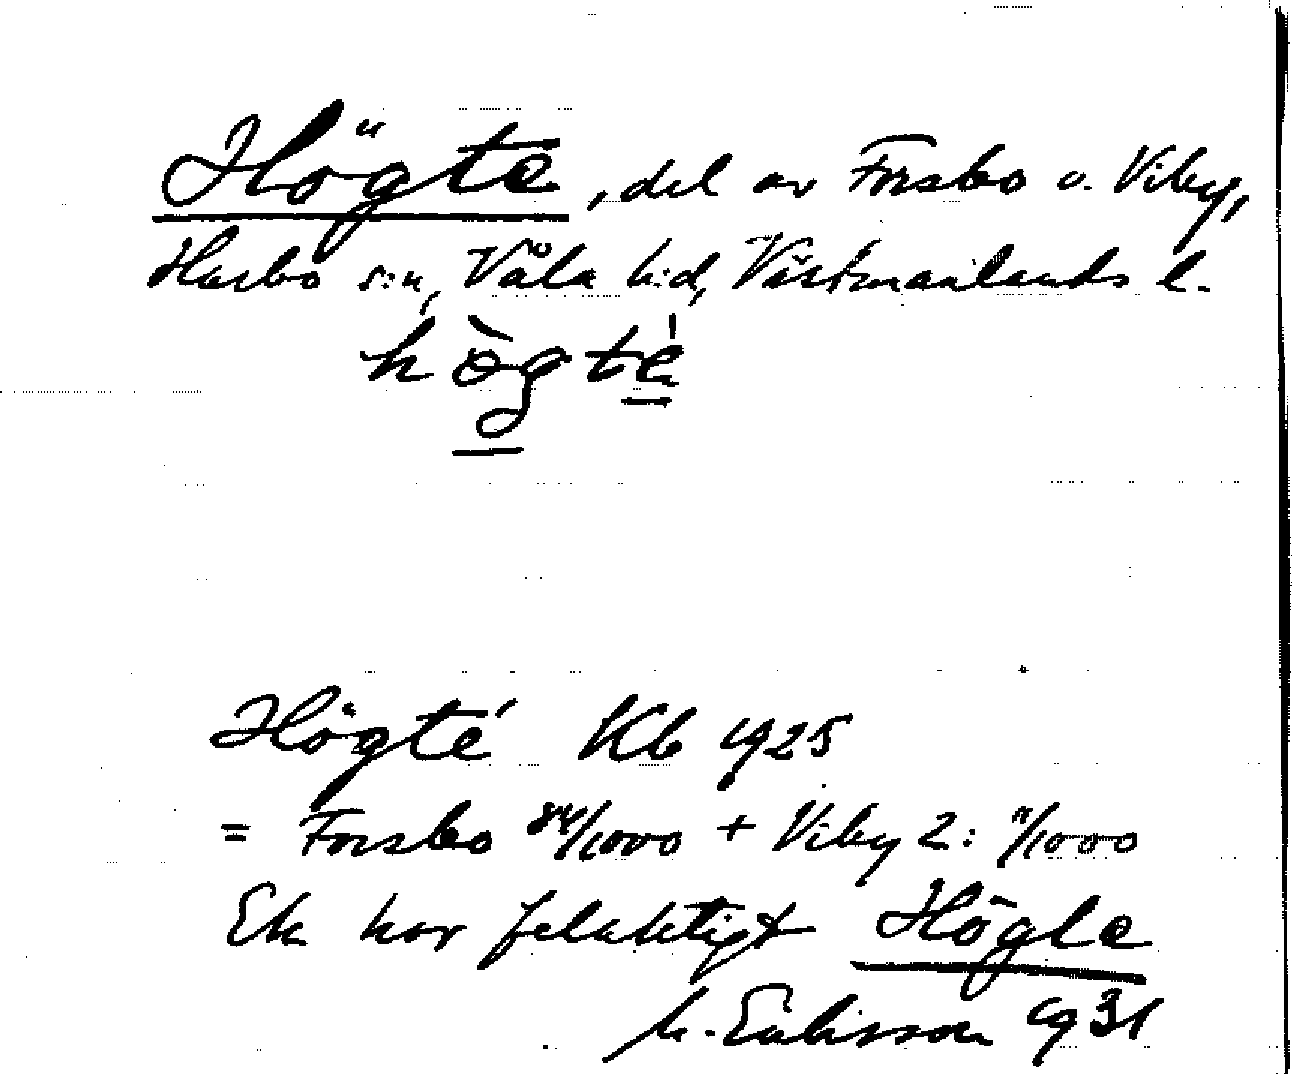 Högte, del av Forsbo o. Viby,
Harbo s:n, Våla h:d, Västmanlands l.
högte
Högté Kb 1925
= Forsbo 84/1000 + Viby 2: 11/1000
Ek har felaktigt Högle
M. Eriksson 1931